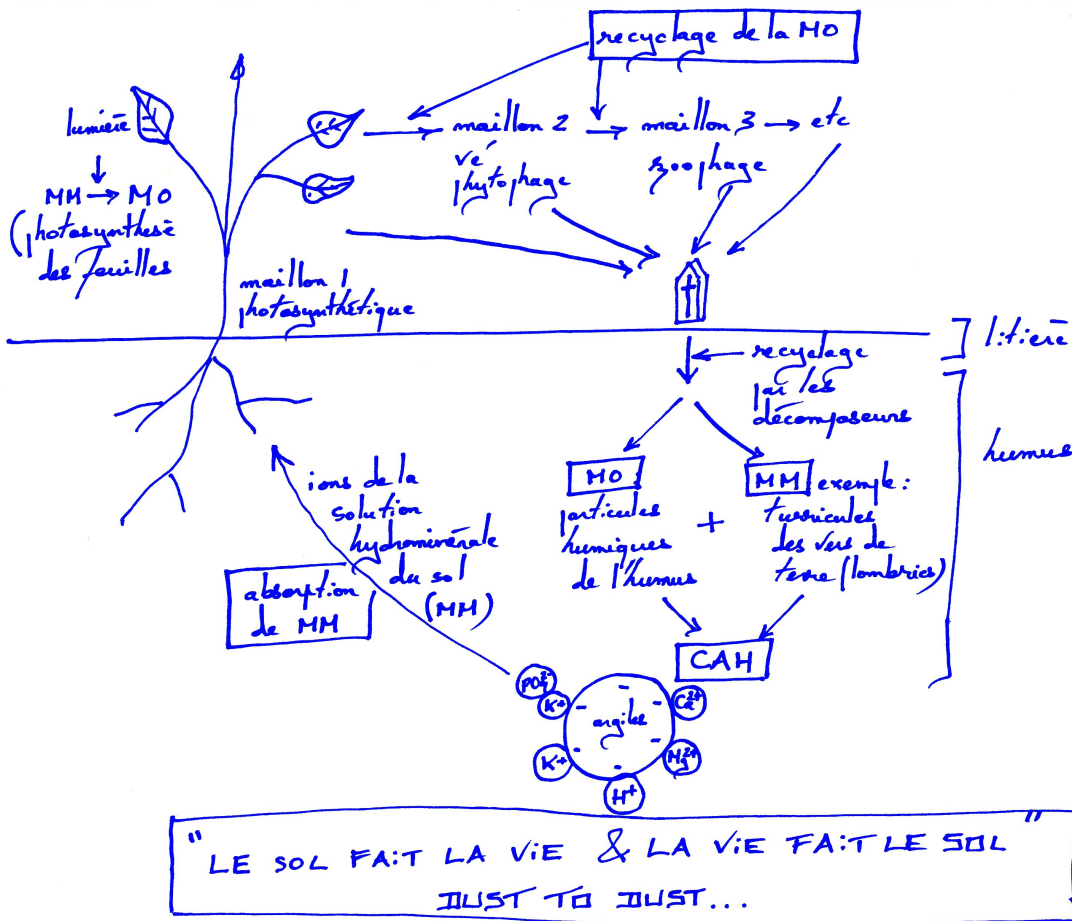 recyclage de la MO
lumière
MM → MO
(photosynthèse
des feuilles
maillon 2
vé
phytophage
maillon 3 → etc
zoophage
maillon 1
photosynthétique
litière
recyclage
par les
décomposeurs
humus
MO
particules
humiques
de l'humus
+
MM exemple:
turricules
des vers de
terre (lombrics)
ions de la
solution
hydrominérale
du sol
(MM)
absorption
de MM
CAH
K+
Ca2+
argiles
K+
Mg2+
H+
"LE SOL FAIT LA VIE & LA VIE FAIT LE SOL"
DUST TO DUST...